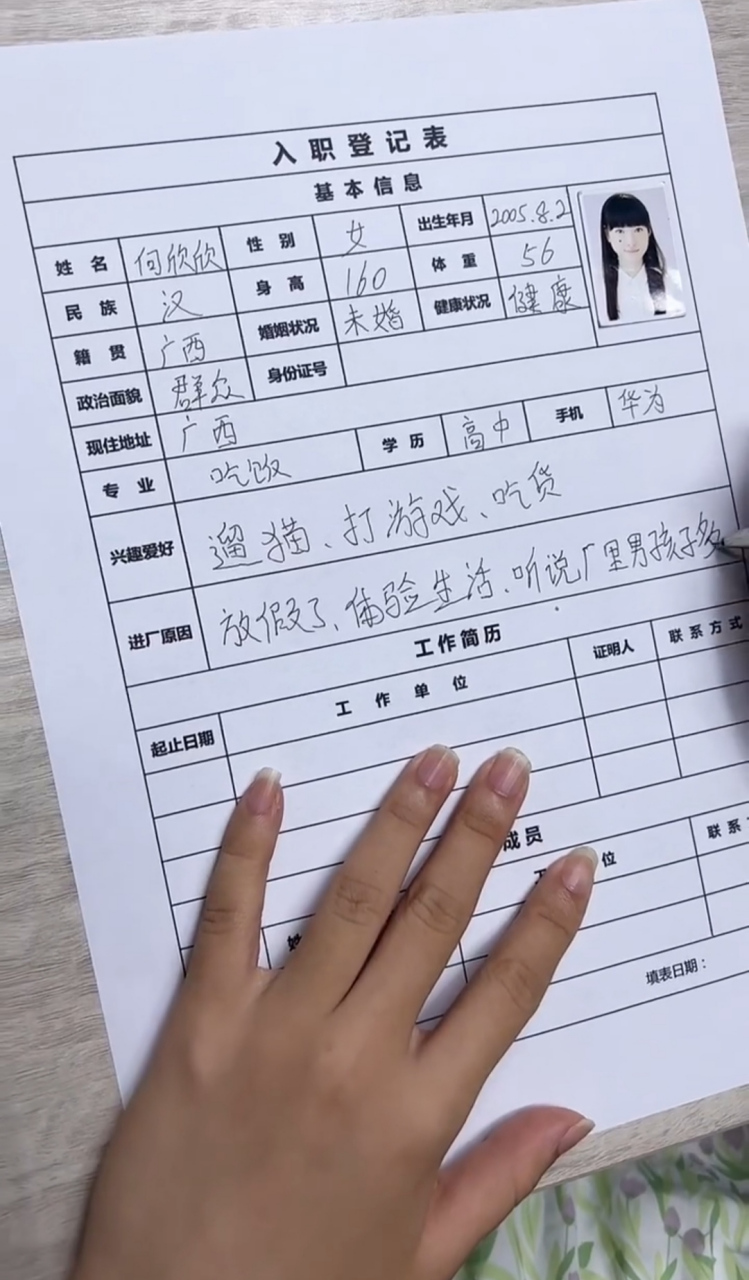 入职登记表
基本信息
姓名 何欣欣 性别 女 出生年月 2005.8.2
民族 汉 身高 160 体重 56
籍贯 广西 婚姻状况 未婚 健康状况 健康
政治面貌 群众 身份证号
现住地址 广西 学历 高中 手机 华为
专业 吃饭
兴趣爱好 遛猫、打游戏、吃货
进厂原因 放假了、体验生活、听说厂里男孩子多
工作简历
起止日期 工作单位 证明人 联系方式
成员
位 联系
填表日期: